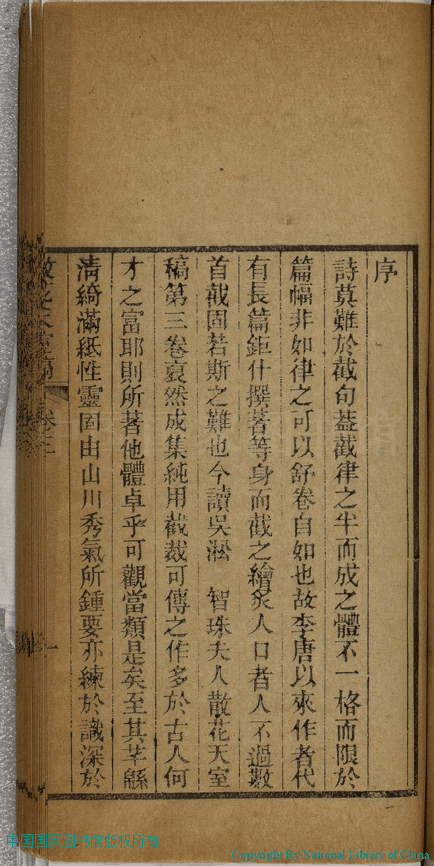 序
詩莫難於截句蓋截律之半而成之體不一格而限於
篇幅非如律之可以舒卷自如也故李唐以來作者代
有長篇鉅什撰著等身而截之繪炙人口者人不過數
首截固若斯之難也今讀吳淞 智珠夫人散花天室
稿第三卷裒然成集純用截裁可傳之作多於古人何
才之富耶則所著他體卓乎可觀當類是矣至其芊緜
清綺滿紙性靈固由山川秀氣所鍾要亦練於識深於
散花天室稿 卷三
一
Copyright By National Library of China